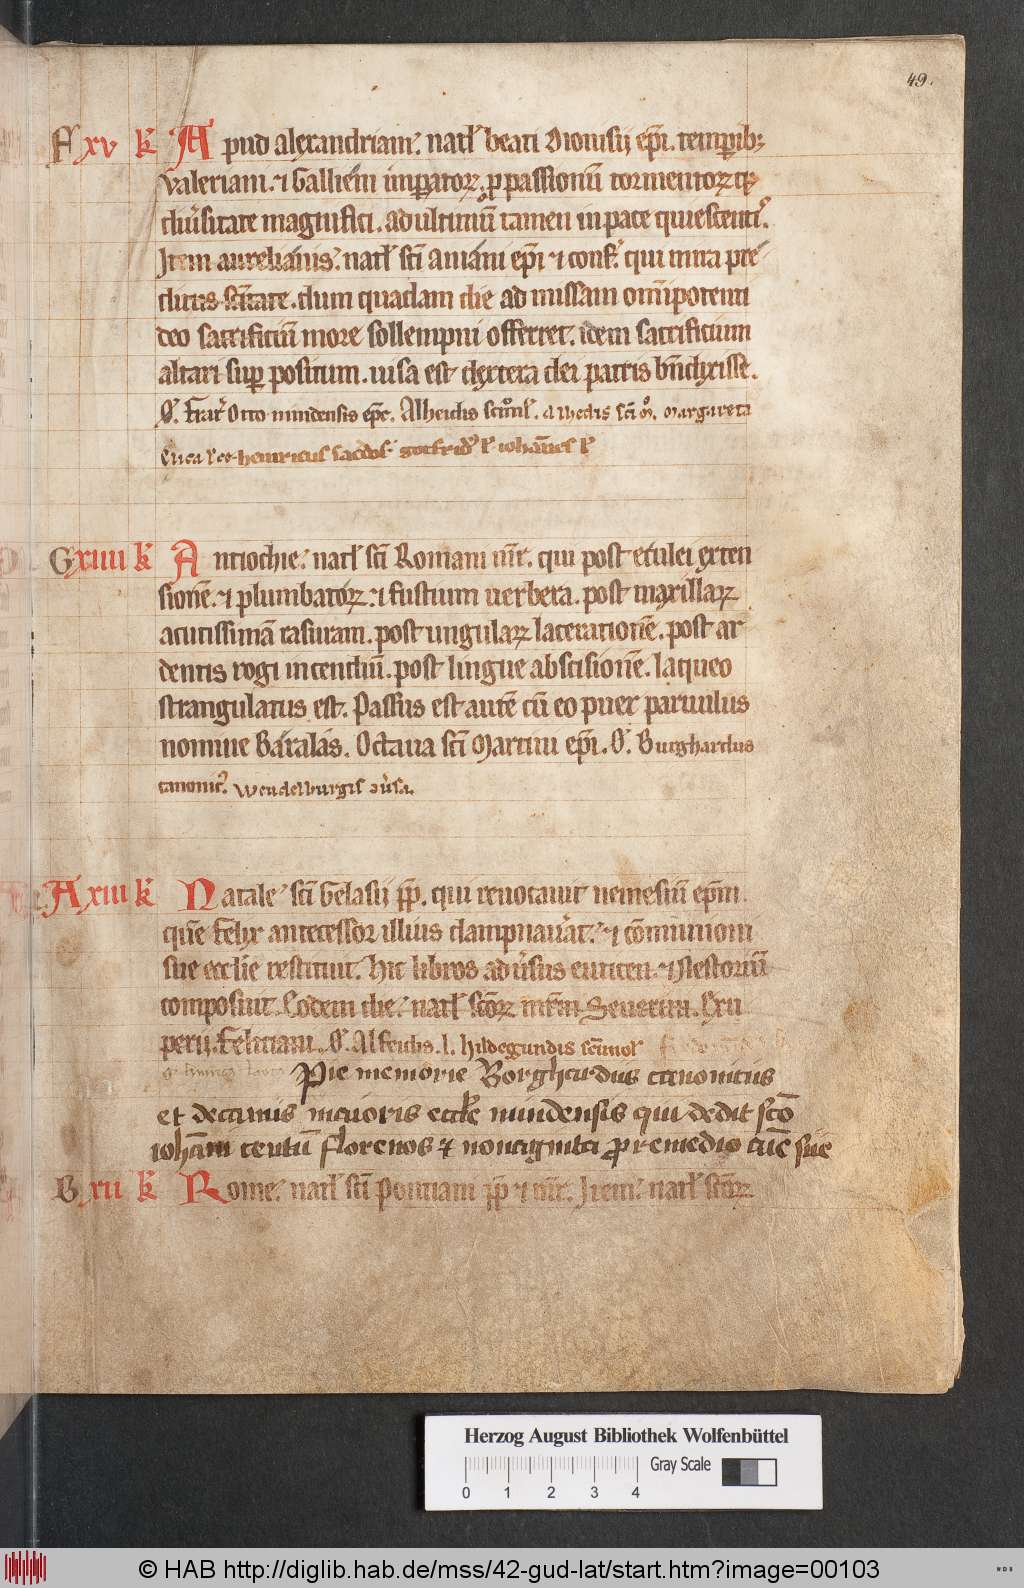 49.
F xv k̅ Apud alexandriam. natł beati Dionisij ep̅i. temporib;
valeriani. ⁊ Gallieni imperatoꝝ. ꝓ passionū tormentoꝝ qꝫ
diu̓sitate magnifici. ad ultimū tamen in pace quiescentis.
Item aurelianis. natł sc̅i Aniani ep̅i ⁊ conf. qui mira pre
ditus sc̅itate. dum quadam die ad missam om̅ipotenti
deo sacrificiū more sollempni offerret. idem sacrificium
altari sup positum. uisa est dextera dei patris bn̅dixisse.
O̓. Frat̓ Otto mindensis ep̅c. Alheidis Alhedis sc̅i mo̅. Margareta
henricus sacdos. gotfrid̓ ł iohannes ł
G xiiii k̅ Antiochie. natł sc̅i Romani mr̅. qui post eculei exten
sionē. ⁊ plumbatoꝝ. ⁊ fustium uerbera. post maxillaꝝ
acutissimā rasuram. post ungulaꝝ lacerationē. post ar
dentis rogi incendiū. post lingue abscisionē. laqueo
strangulatus est. Passus est autē cū eo puer paruulus
nomine Baralas. Octaua sc̅i Martini ep̅i. O̓. Burghardus
canonic̓. Wendelburgis cu̓sa.
A xiii k̅ Natale sc̅i Gelasij pp̅. qui reuocauit nemesiū ep̅m.
quē Felix antecessor illius dampnau̓at. ⁊ cōmunioni
sue eccłie restituit. hic libros adu̓sus euticen ⁊ Nestoriū
composuit. Eodem die. natł sc̅oꝝ mr̅m Seuerini. Exu
perij. Feliciani. O̓. Alfeidis. l. hildegundis
Pie memorie Borghardus canonicus
et decanus maioris eccłe mindensis qui dedit sc̅o
ioha̅ni centū florenos ⁊ nonaginta pro remedio aīe sue
B xii k̅ Rome. natł sc̅i Pontiani pp̅ ⁊ mr̅. Item. natł sc̅oꝝ
Herzog August Bibliothek Wolfenbüttel
Gray Scale
0 1 2 3 4
© HAB http://diglib.hab.de/mss/42-gud-lat/start.htm?image=00103